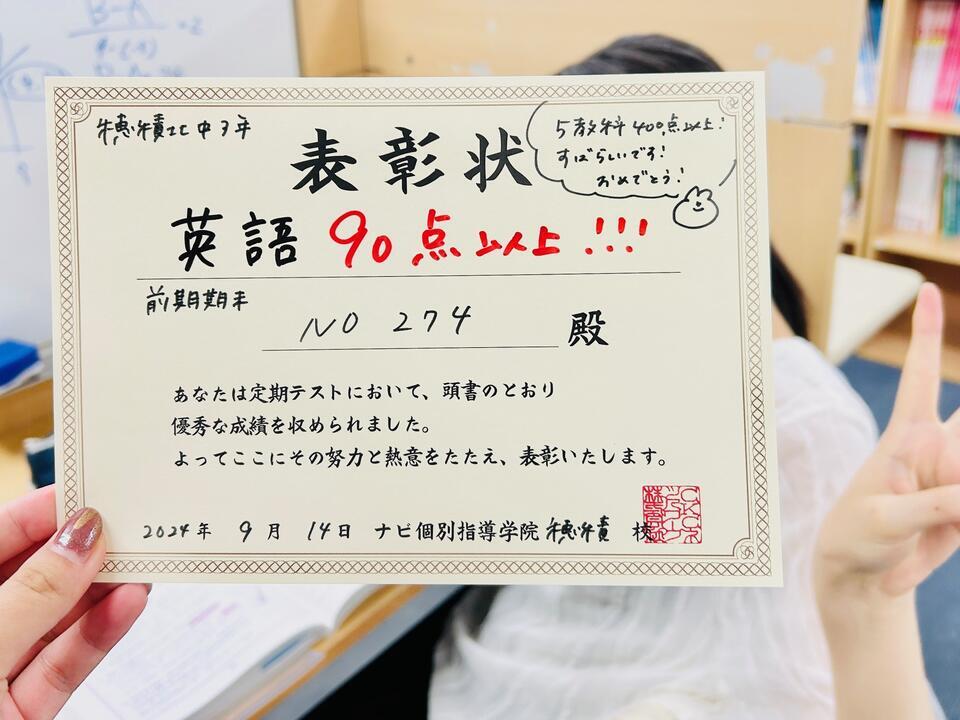 穂積北中3年
表彰状
5教科400点以上!
すばらしいです!
おめでとう!
英語 90点以上!!!
前期期末
NO 274 殿
あなたは定期テストにおいて、頭書のとおり
優秀な成績を収められました。
よってここにその努力と熱意をたたえ、表彰いたします。
2024年 9月 14日 ナビ個別指導学院 穂積 校